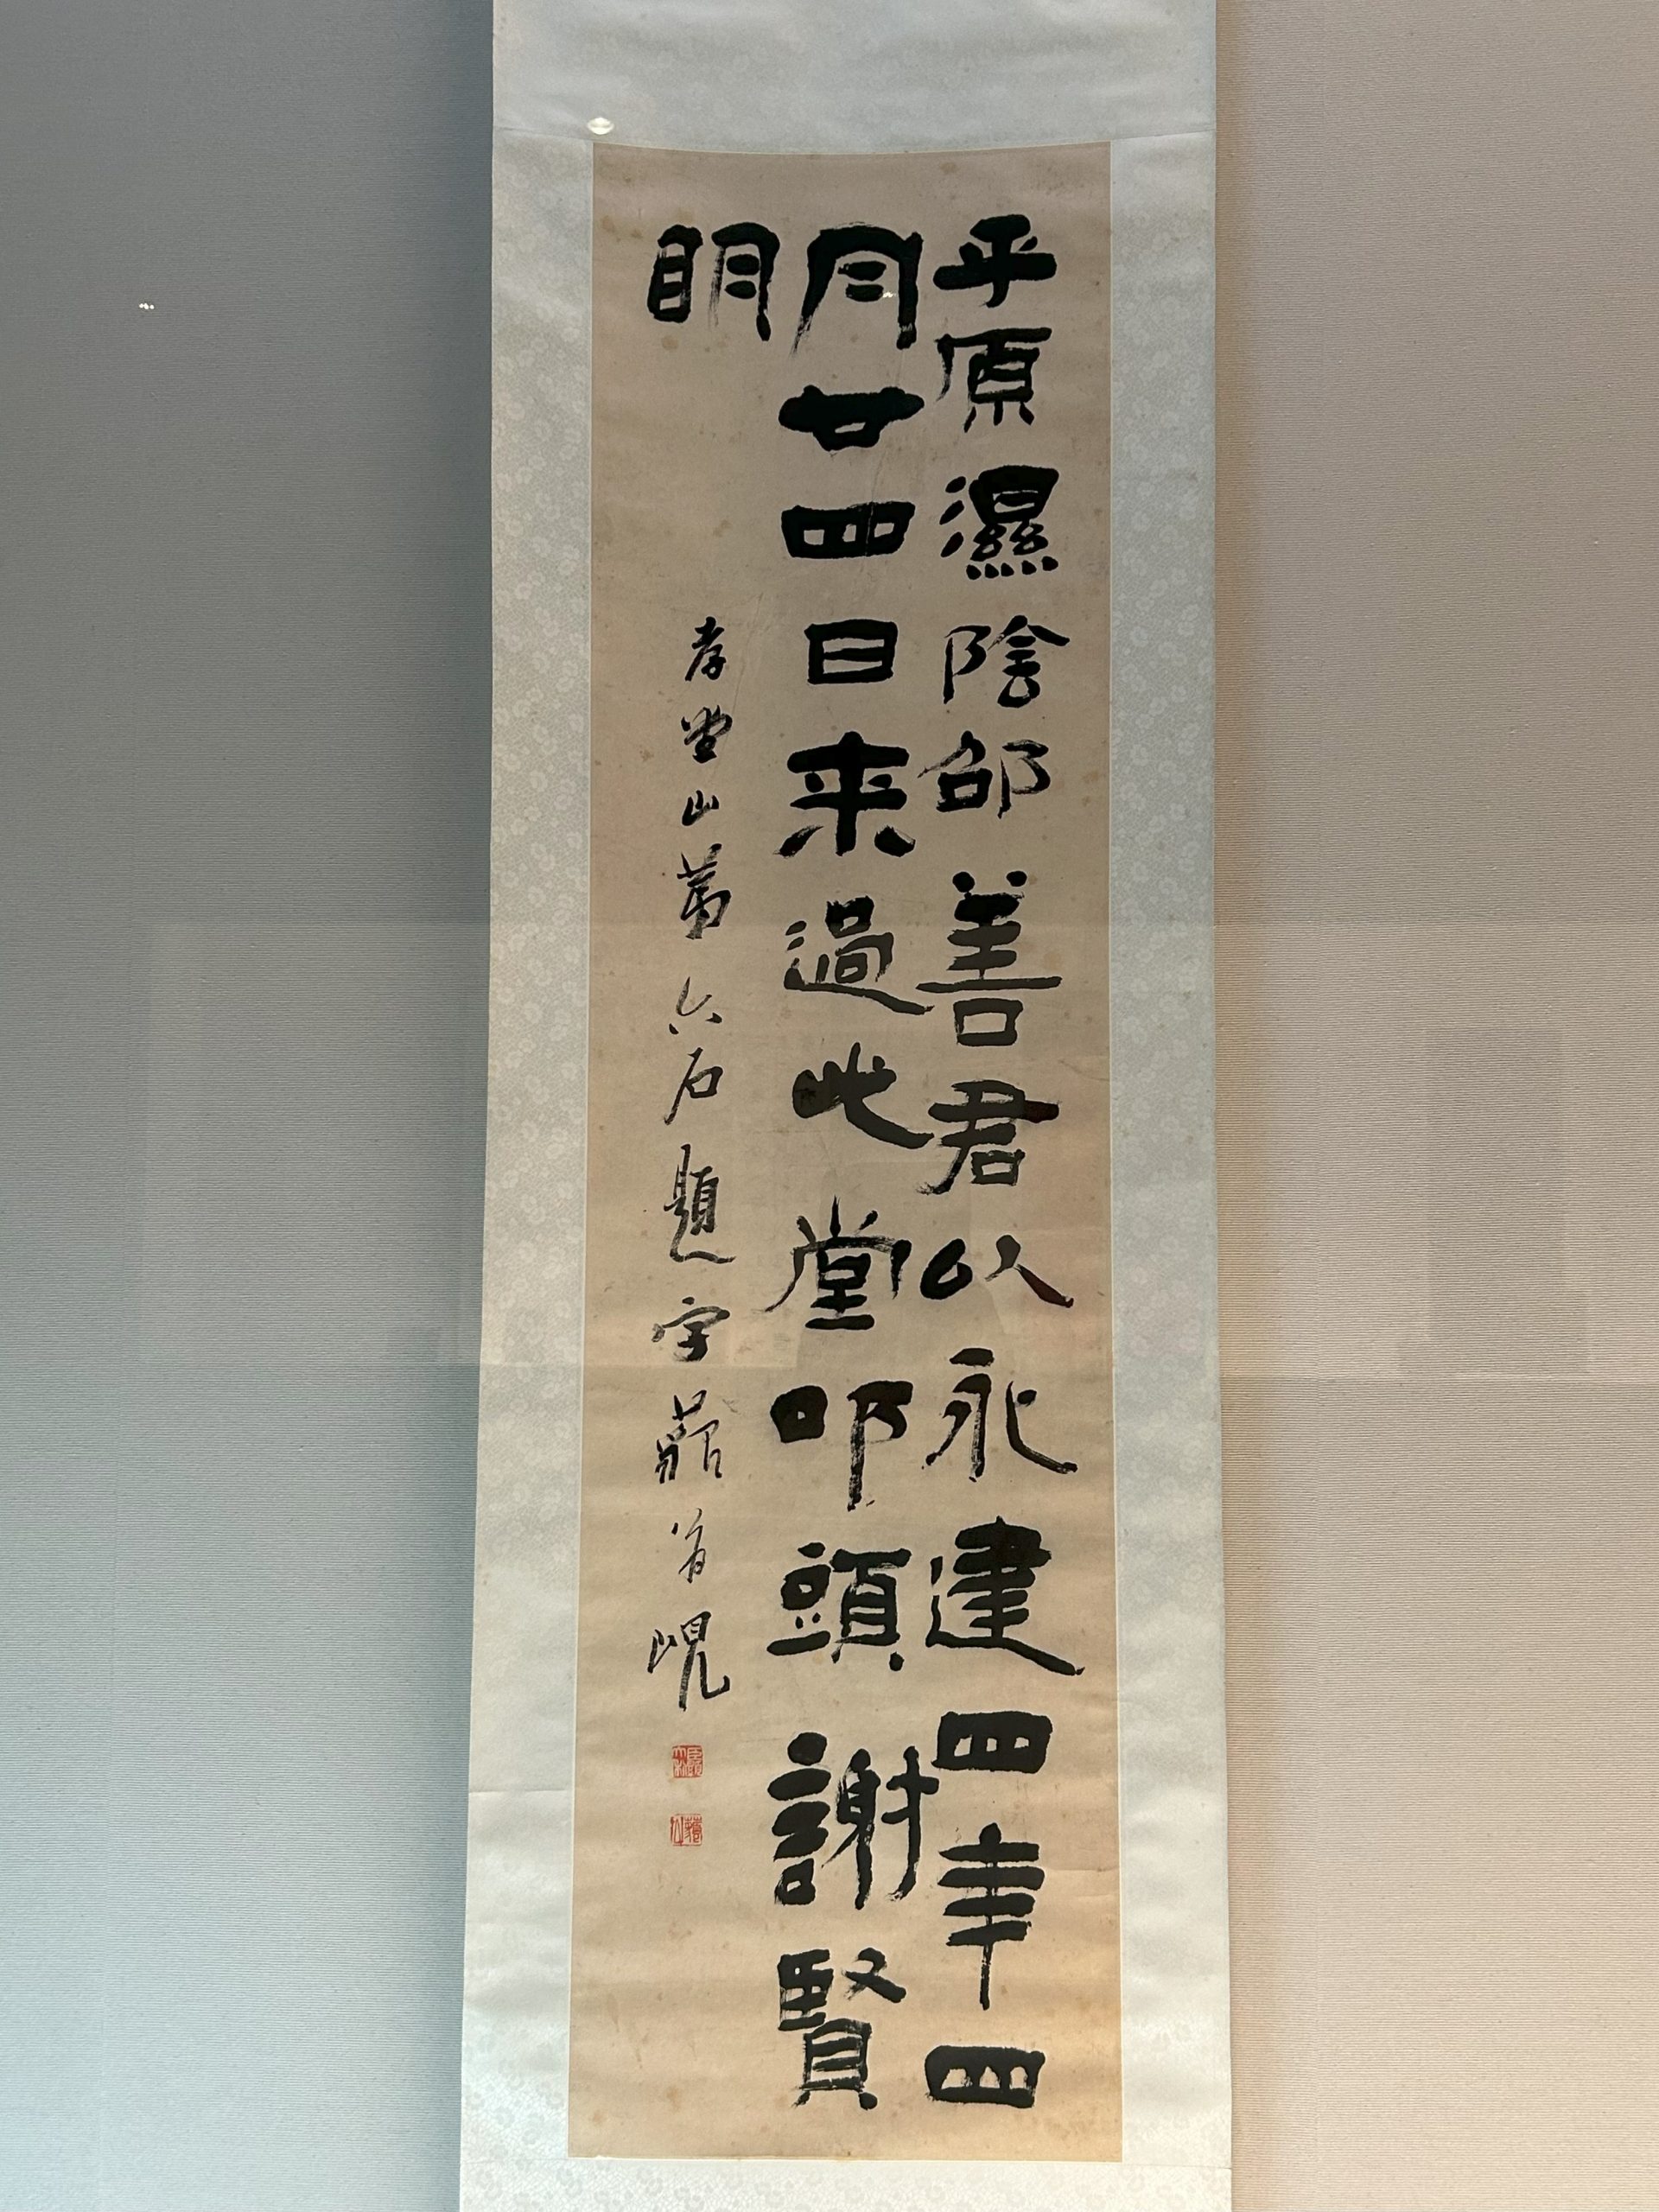 平原濕陰邵善君以永建四年四
月廿四日来過此堂叩頭謝賢
明
孝堂山第六石題字藐翁峴